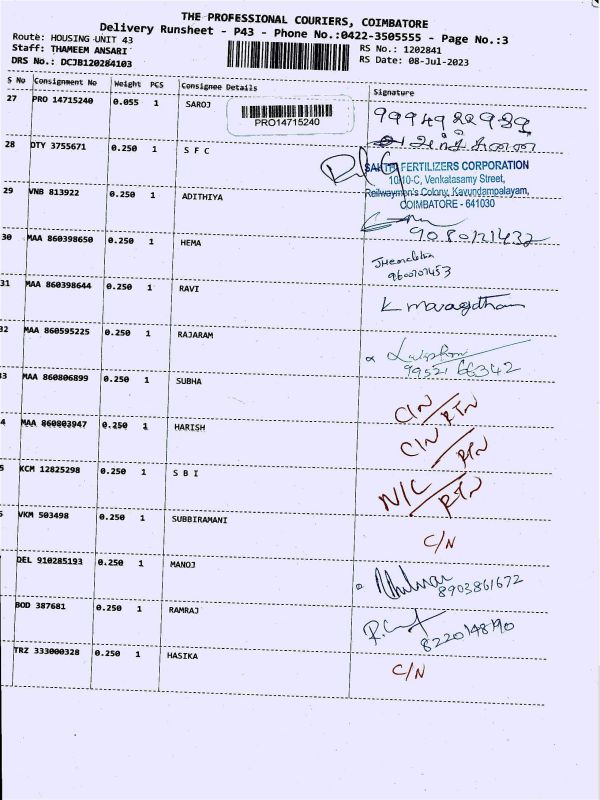 THE PROFESSIONAL COURIERS, COIMBATORE
Delivery Runsheet - P43 - Phone No.:0422-3505555 - Page No.:3
Route: HOUSING UNIT 43
Staff: THAMEEM ANSARI RS No.: 1202841
DRS No.: DCJB120284103 RS Date: 08-Jul-2023
S No Consignment No Weight PCS Consignee Details Signature
27 PRO 14715240 0.055 1 SAROJ PRO14715240 9994982989
28 DTY 3755671 0.250 1 S F C
SAKTHI FERTILIZERS CORPORATION
10/10-C, Venkatasamy Street,
Railwaymen's Colony, Kavundampalayam,
COIMBATORE - 641030
29 VNB 813922 0.250 1 ADITHIYA
9080121432
30 MAA 860398650 0.250 1 HEMA
9600707453
31 MAA 860398644 0.250 1 RAVI K Maragatham
32 MAA 860595225 0.250 1 RAJARAM
9952166342
3 MAA 860806899 0.250 1 SUBHA C/N RTN
4 MAA 860803947 0.250 1 HARISH C/N RTN
5 KCM 12825298 0.250 1 S B I N/C RTN
VKM 503498 0.250 1 SUBBIRAMANI C/N
DEL 910285193 0.250 1 MANOJ
8903861672
BOD 387681 0.250 1 RAMRAJ
8220148190
TRZ 333000328 0.250 1 HASIKA C/N